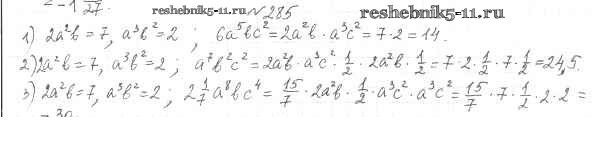 = -1 —/27. reshebnik5-11.ru № 285 reshebnik5-11.ru
1) 2a²b = 7, a³b² = 2 ; 6a⁵bc² = 2a²b · a³c² = 7 · 2 = 14.
2) 2a²b = 7, a³b² = 2 ; a⁷b²c² = 2a²b · a³c² · 1/2 · 2a²b · 1/2 = 7 · 2 · 1/2 · 7 · 1/2 = 24,5.
3) 2a²b = 7, a³b² = 2 ; 2 1/7 a⁸bc⁴ = 15/7 · 2a²b · 1/2 · a³c² · a³c² = 15/7 · 7 · 1/2 · 2 · 2 =